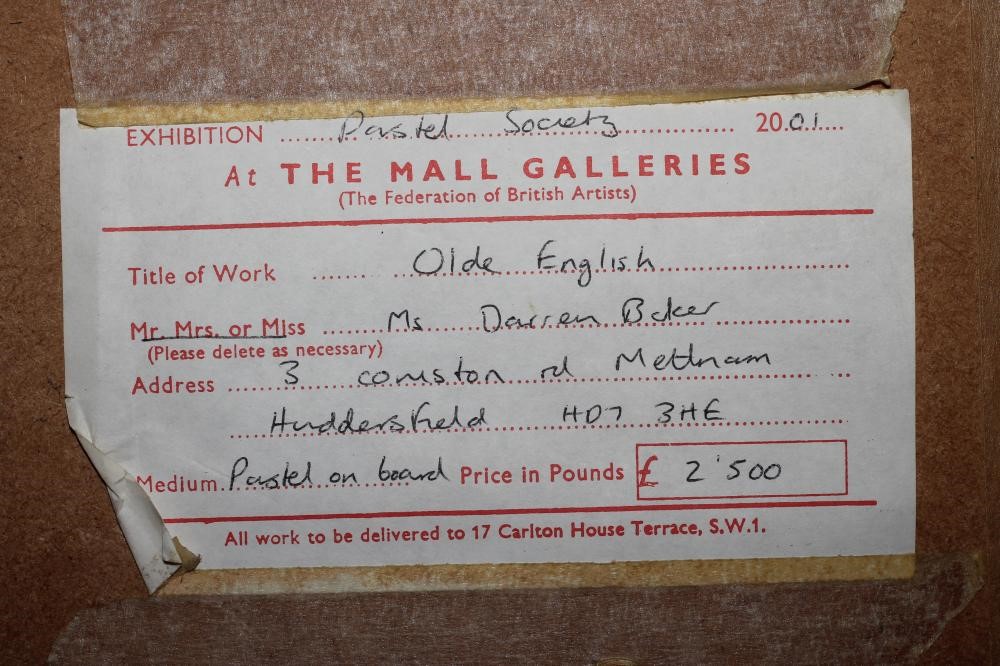 EXHIBITION Pastel Society 2001
At THE MALL GALLERIES
(The Federation of British Artists)
Title of Work Olde English
Mr. Mrs. or Miss Ms Darren Baker
(Please delete as necessary)
Address 3 rd
Huddersfield HD7 3HE
Medium Pastel on board Price in Pounds £ 2'500
All work to be delivered to 17 Carlton House Terrace, S.W.1.